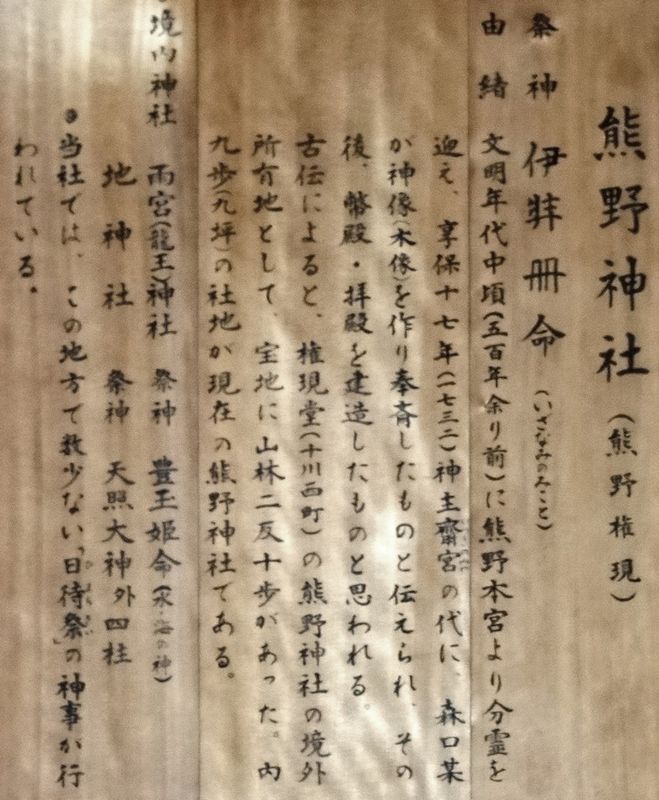 熊野神社(熊野権現)
祭神 伊弉冊命(いざなみのみこと)
由緒 文明年代中頃(五百年余り前)に熊野本宮より分霊を
迎え、享保十七年(一七三二)神主齋宮の代に、森口某
が神像(木像)を作り奉斉したものと伝えられ、その
後、幣殿・拝殿を建造したものと思われる。
古伝によると、権現堂(十川西町)の熊野神社の境外
所有地として、宝地に山林二反十歩があった。内
九歩(九坪)の社地が現在の熊野神社である。
境内神社 雨宮(龍王)神社 祭神 豊玉姫命(水・海の神)
地神社 祭神 天照大神外四柱
当社では、この地方で数少ない「日待祭」の神事が行
われている。